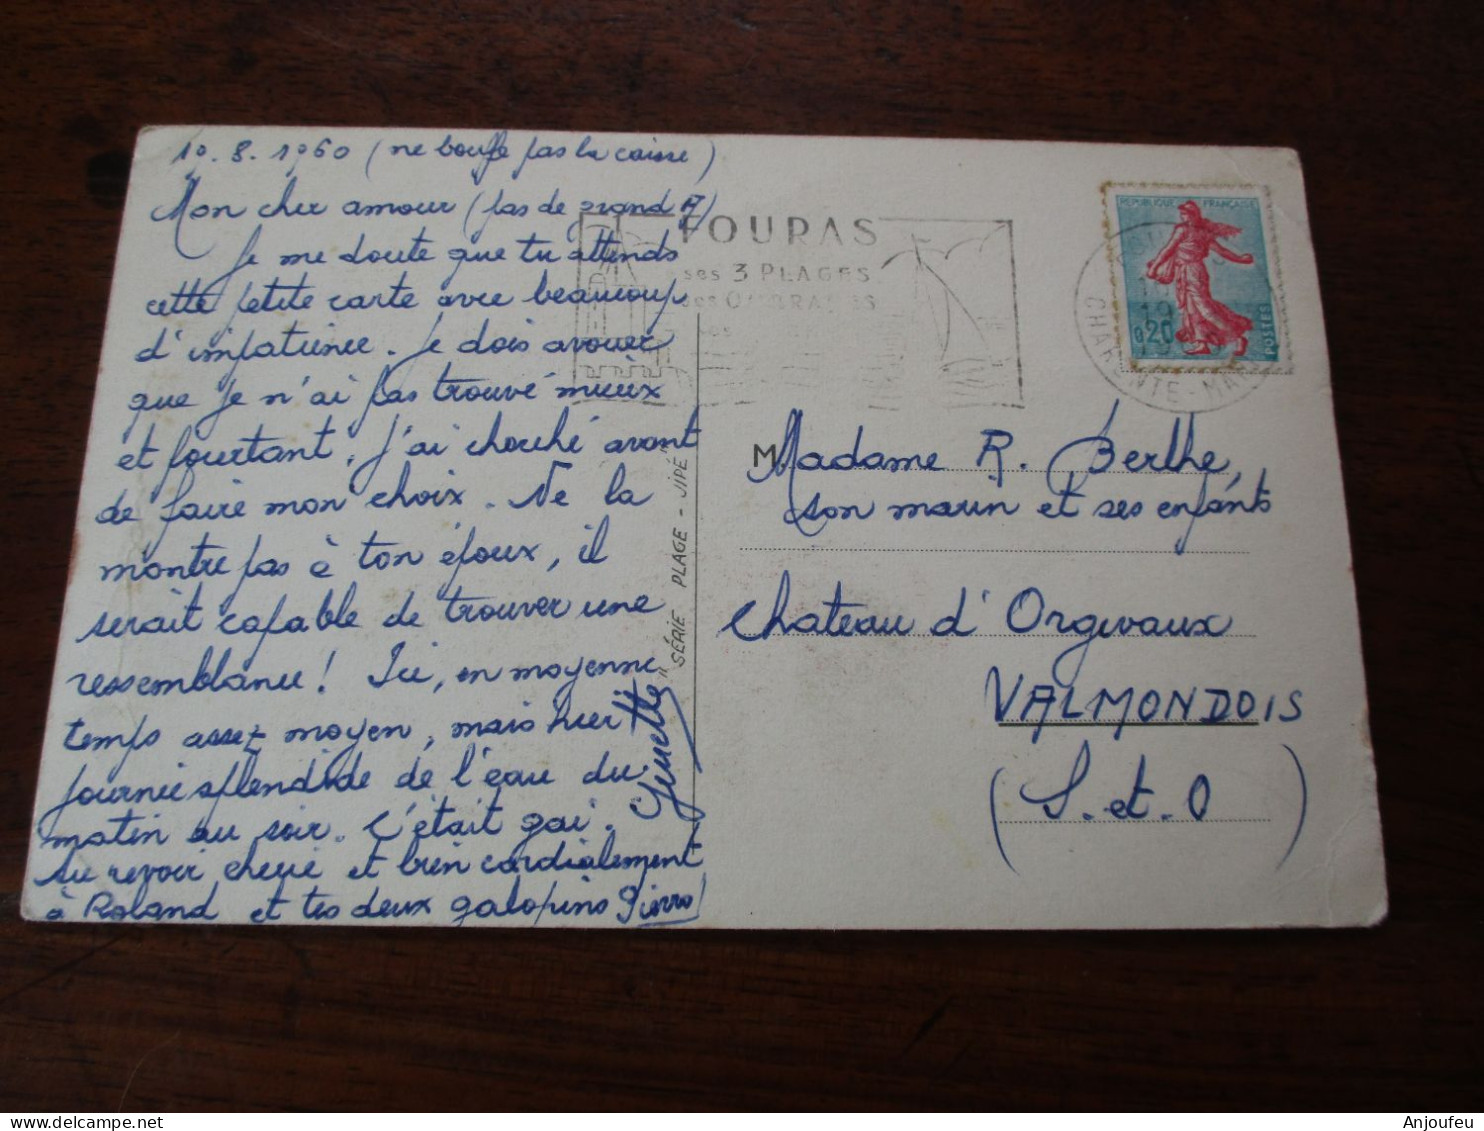 19.8.1960 (ne bouffe pas la caisse)
Mon cher amour (pas de grand A)
Je me doute que tu attends
cette petite carte avec beaucoup
d'impatience. Je dois avouer
que je n'ai pas trouvé mieux
et pourtant, j'ai cherché avant
de faire mon choix. Ne la
montre pas à ton époux, il
serait capable de trouver une
ressemblance! Ici, en moyenne
temps assez moyen, mais hier
journée splendide de l'eau du
matin au soir. C'était gai.
Au revoir cherie et bien cordialement
à Roland et tes deux galopins Pierro
Ginette
"SÉRIE PLAGE - JIPÉ"
FOURAS
ses 3 PLAGES
ses OMBRAGES
ses
REPUBLIQUE FRANÇAISE
0,20
POSTES
19
CHARENTE-MAR
M Madame R. Berthe,
son marin et ses enfants
Chateau d'Orgivaux
VALMONDOIS
(S.et.O)
Anjoufeu